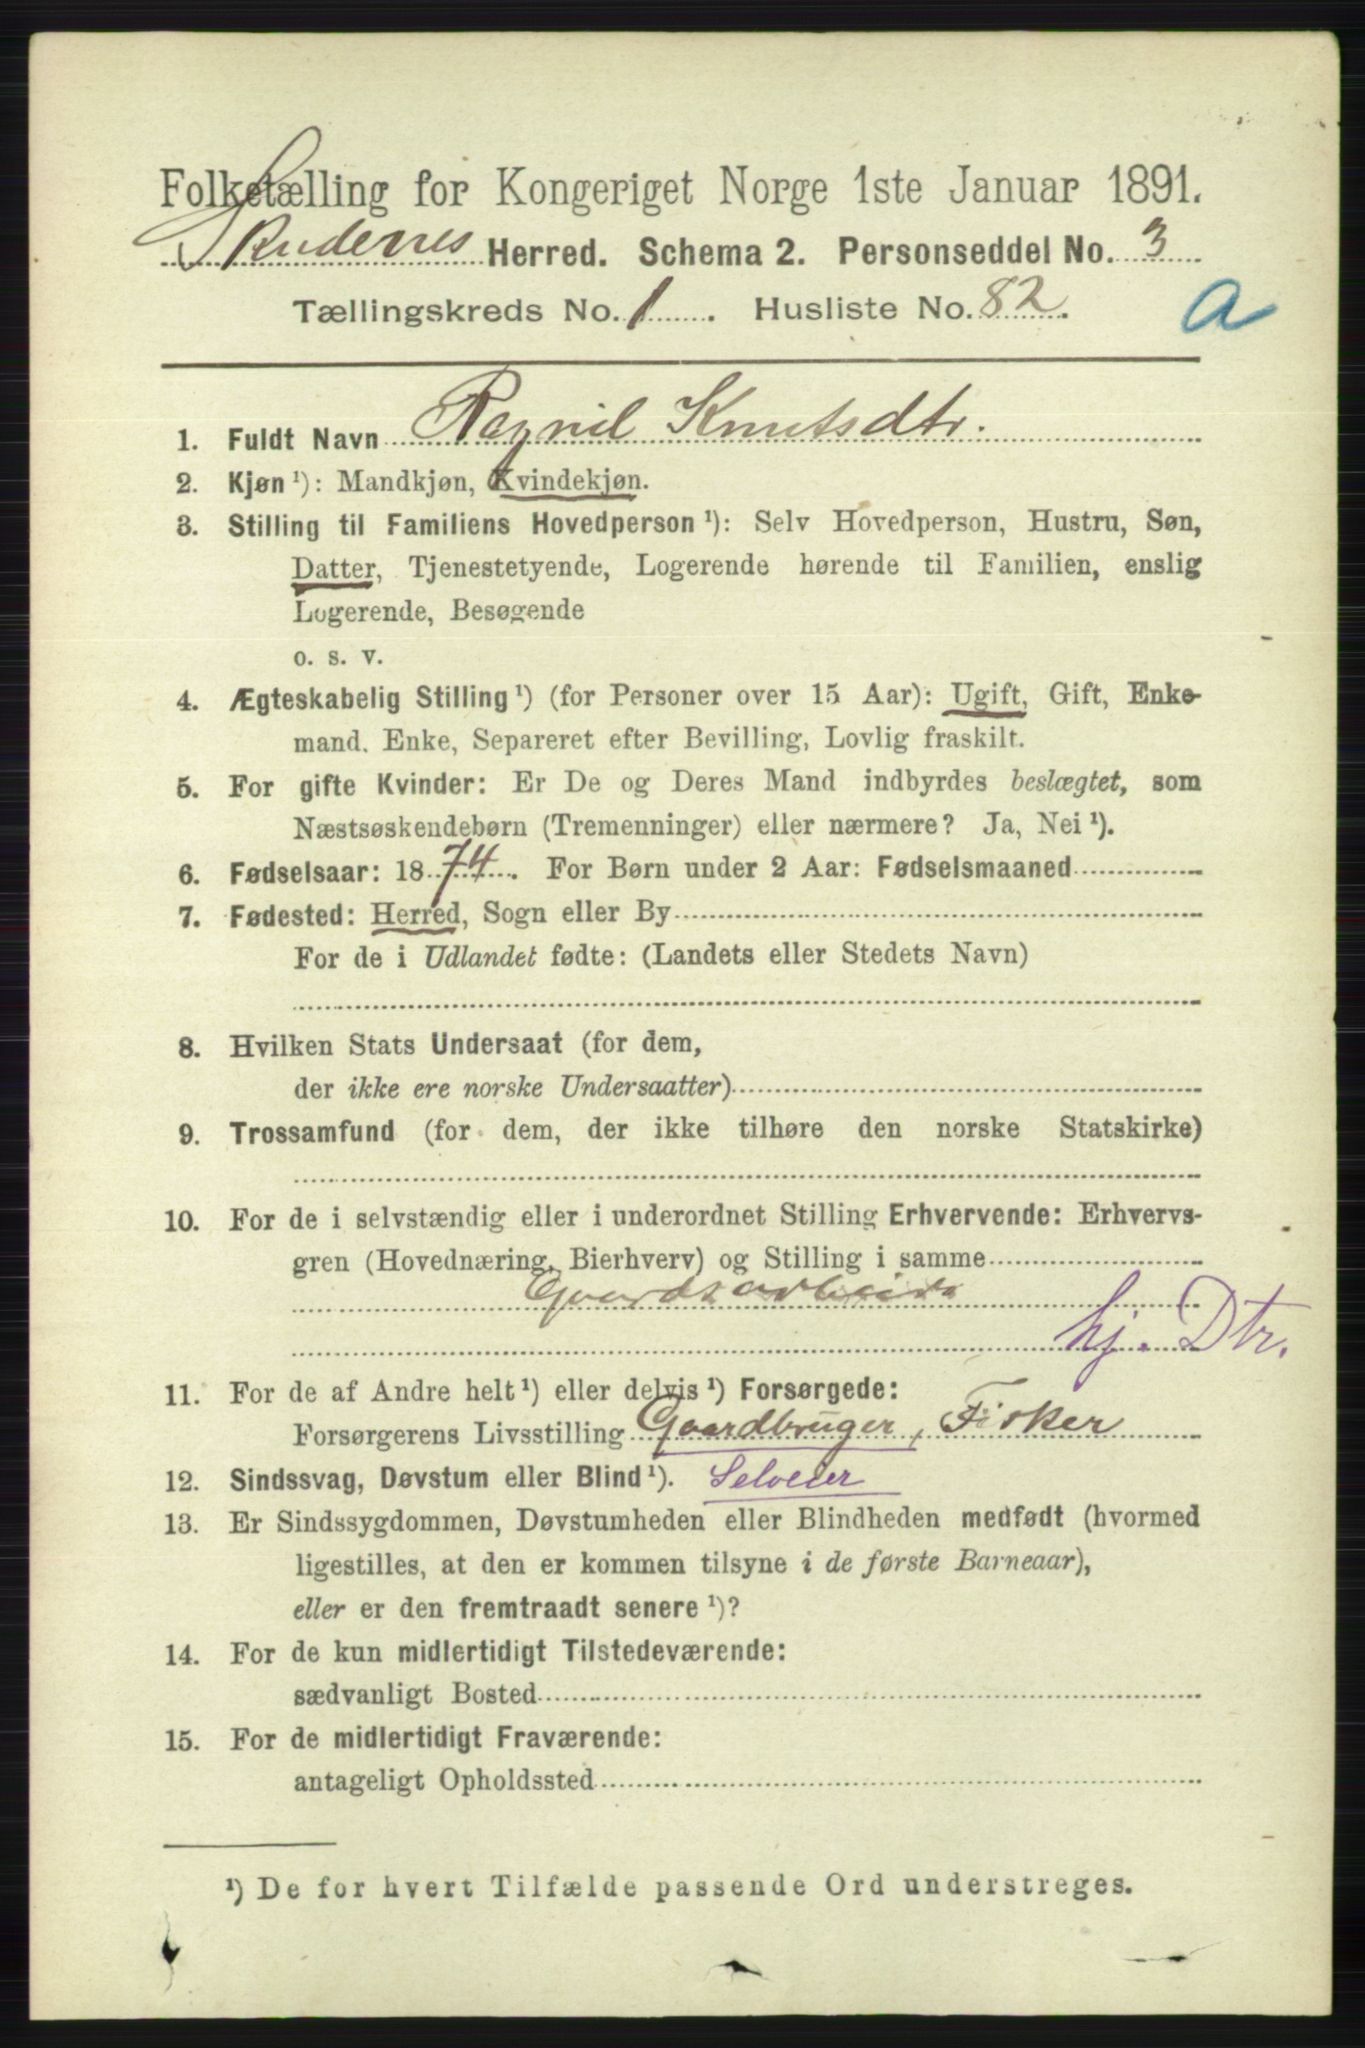 Folketælling for Kongeriget Norge 1ste Januar 1891.
Skudenes Herred. Schema 2. Personseddel No. 3
Tællingskreds No. 1. Husliste No. 82. a
1. Fuldt Navn Ragnil Knutsdtr.
2. Kjøn ¹): Mandkjøn, Kvindekjøn.
3. Stilling til Familiens Hovedperson ¹): Selv Hovedperson, Hustru, Søn,
Datter, Tjenestetyende, Logerende hørende til Familien, enslig
Logerende, Besøgende
o. s. v.
4. Ægteskabelig Stilling ¹) (for Personer over 15 Aar): Ugift, Gift, Enke-
mand. Enke, Separeret efter Bevilling, Lovlig fraskilt.
5. For gifte Kvinder: Er De og Deres Mand indbyrdes beslægtet, som
Næstsøskendebørn (Tremenninger) eller nærmere? Ja, Nei ¹).
6. Fødselsaar: 1874. For Børn under 2 Aar: Fødselsmaaned
7. Fødested: Herred, Sogn eller By
For de i Udlandet fødte: (Landets eller Stedets Navn)
8. Hvilken Stats Undersaat (for dem,
der ikke ere norske Undersaatter)
9. Trossamfund (for dem, der ikke tilhøre den norske Statskirke)
10. For de i selvstændig eller i underordnet Stilling Erhvervende: Erhvervs-
gren (Hovednæring, Bierhverv) og Stilling i samme
Gaardsarbeide
hj. Dtr.
11. For de af Andre helt ¹) eller delvis ¹) Forsørgede:
Forsørgerens Livsstilling Gaardbruger, Fisker
12. Sindssvag, Døvstum eller Blind ¹). Selveier
13. Er Sindssygdommen, Døvstumheden eller Blindheden medfødt (hvormed
ligestilles, at den er kommen tilsyne i de første Barneaar),
eller er den fremtraadt senere ¹)?
14. For de kun midlertidigt Tilstedeværende:
sædvanligt Bosted
15. For de midlertidigt Fraværende:
antageligt Opholdssted
¹) De for hvert Tilfælde passende Ord understreges.